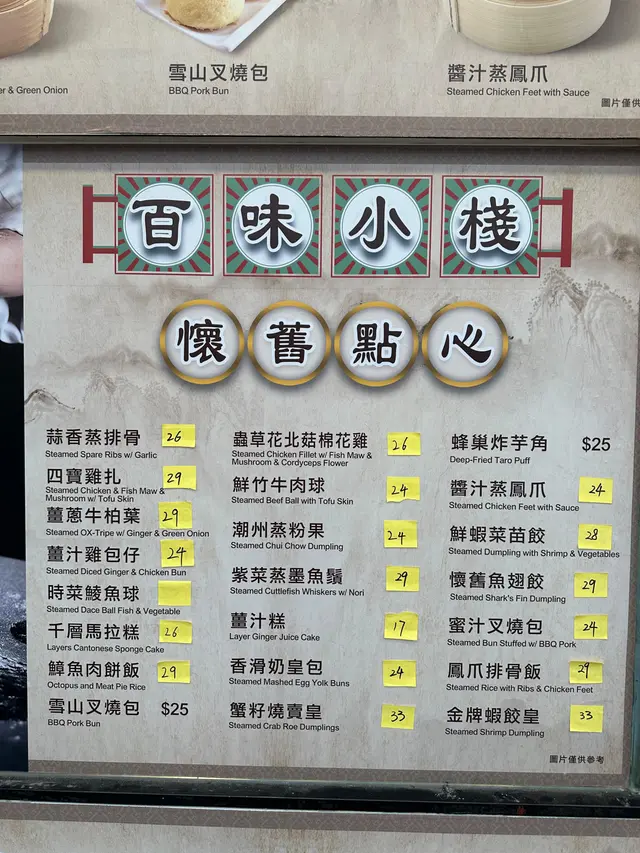 er & Green Onion
雪山叉燒包
BBQ Pork Bun
醬汁蒸鳳爪
Steamed Chicken Feet with Sauce
圖片僅供
百味小棧
懷舊點心
蒜香蒸排骨 26
Steamed Spare Ribs w/ Garlic
四寶雞扎 29
Steamed Chicken & Fish Maw &
Mushroom w/ Tofu Skin
薑蔥牛柏葉 29
Steamed OX-Tripe w/ Ginger & Green Onion
薑汁雞包仔 24
Steamed Diced Ginger & Chicken Bun
時菜鯪魚球
Steamed Dace Ball Fish & Vegetable
千層馬拉糕 26
Layers Cantonese Sponge Cake
鱆魚肉餅飯 29
Octopus and Meat Pie Rice
雪山叉燒包 $25
BBQ Pork Bun
蟲草花北菇棉花雞 26
Steamed Chicken Fillet w/ Fish Maw &
Mushroom & Cordyceps Flower
鮮竹牛肉球 24
Steamed Beef Ball with Tofu Skin
潮州蒸粉果 24
Steamed Chui Chow Dumpling
紫菜蒸墨魚鬚 29
Steamed Cuttlefish Whiskers w/ Nori
薑汁糕 17
Layer Ginger Juice Cake
香滑奶皇包 24
Steamed Mashed Egg Yolk Buns
蟹籽燒賣皇 33
Steamed Crab Roe Dumplings
蜂巢炸芋角 $25
Deep-Fried Taro Puff
醬汁蒸鳳爪 24
Steamed Chicken Feet with Sauce
鮮蝦菜苗餃 28
Steamed Dumpling with Shrimp & Vegetables
懷舊魚翅餃 29
Steamed Shark's Fin Dumpling
蜜汁叉燒包 24
Steamed Bun Stuffed w/ BBQ Pork
鳳爪排骨飯 29
Steamed Rice with Ribs & Chicken Feet
金牌蝦餃皇 33
Steamed Shrimp Dumpling
圖片僅供參考